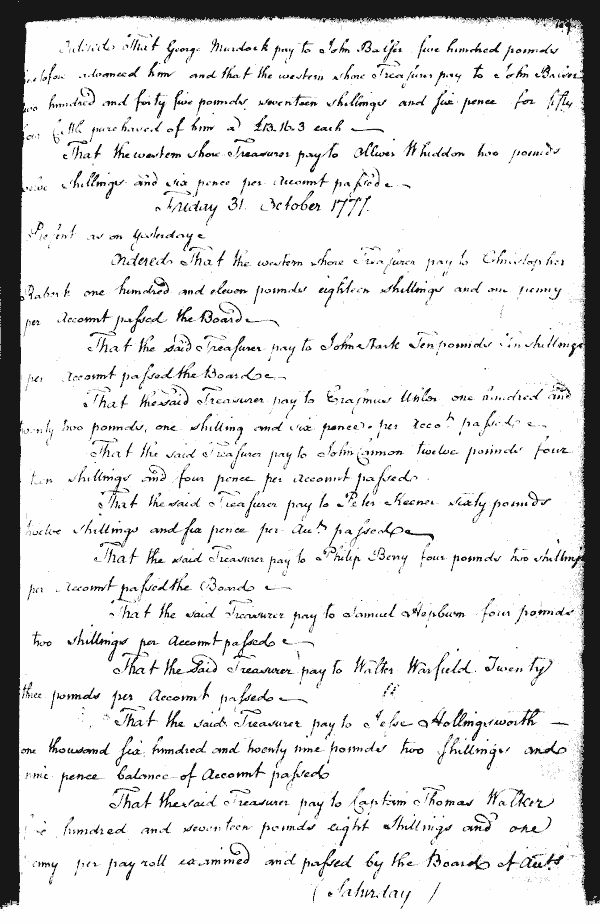 Ordered That George Murdock pay to John Baiser five hundred pounds
heretofore advanced him and that the western shore Treasurer pay to John Baiser
two hundred and forty five pounds, seventeen shillings and six pence for fifty
four purchased of him a £13.16.3 each
That the western shore Treasurer pay to Olliver Whiddon two pounds
twelve shillings and six pence per Account passed
Friday 31. October 1777.
Present as on Yesterday
Ordered That the western shore Treasurer pay to Christopher
Rabork one hundred and eleven pounds eighteen shillings and one penny
per Account passed the Board
That the said Treasurer pay to John Stark Ten pounds Ten shillings
per Account passed the Board
That the said Treasurer pay to Erasmus Uhler one hundred and
twenty two pounds, one shilling and six pence per Acco.t passed
That the said Treasurer pay to John Cannon twelve pounds four
teen shillings and four pence per Account passed.
That the said Treasurer pay to Peter Keener sixty pounds
twelve shillings and six pence per Au.t passed
That the said Treasurer pay to Philip Berry four pounds two shillings
per Account passed the Board
That the said Treasurer pay to Samuel Hepburn four pounds
two shillings per Account passed
That the said Treasurer pay to Walter Warfield Twenty
three pounds per Account passed
That the said Treasurer pay to Jesse Hollingsworth
one thousand six hundred and twenty nine pounds two shillings and
nine pence balance of Account passed
That the said Treasurer pay to Captain Thomas Walker
hundred and seventeen pounds eight shillings and one
penny per pay roll examined and passed by the Board of Au.ts
( Saturday )